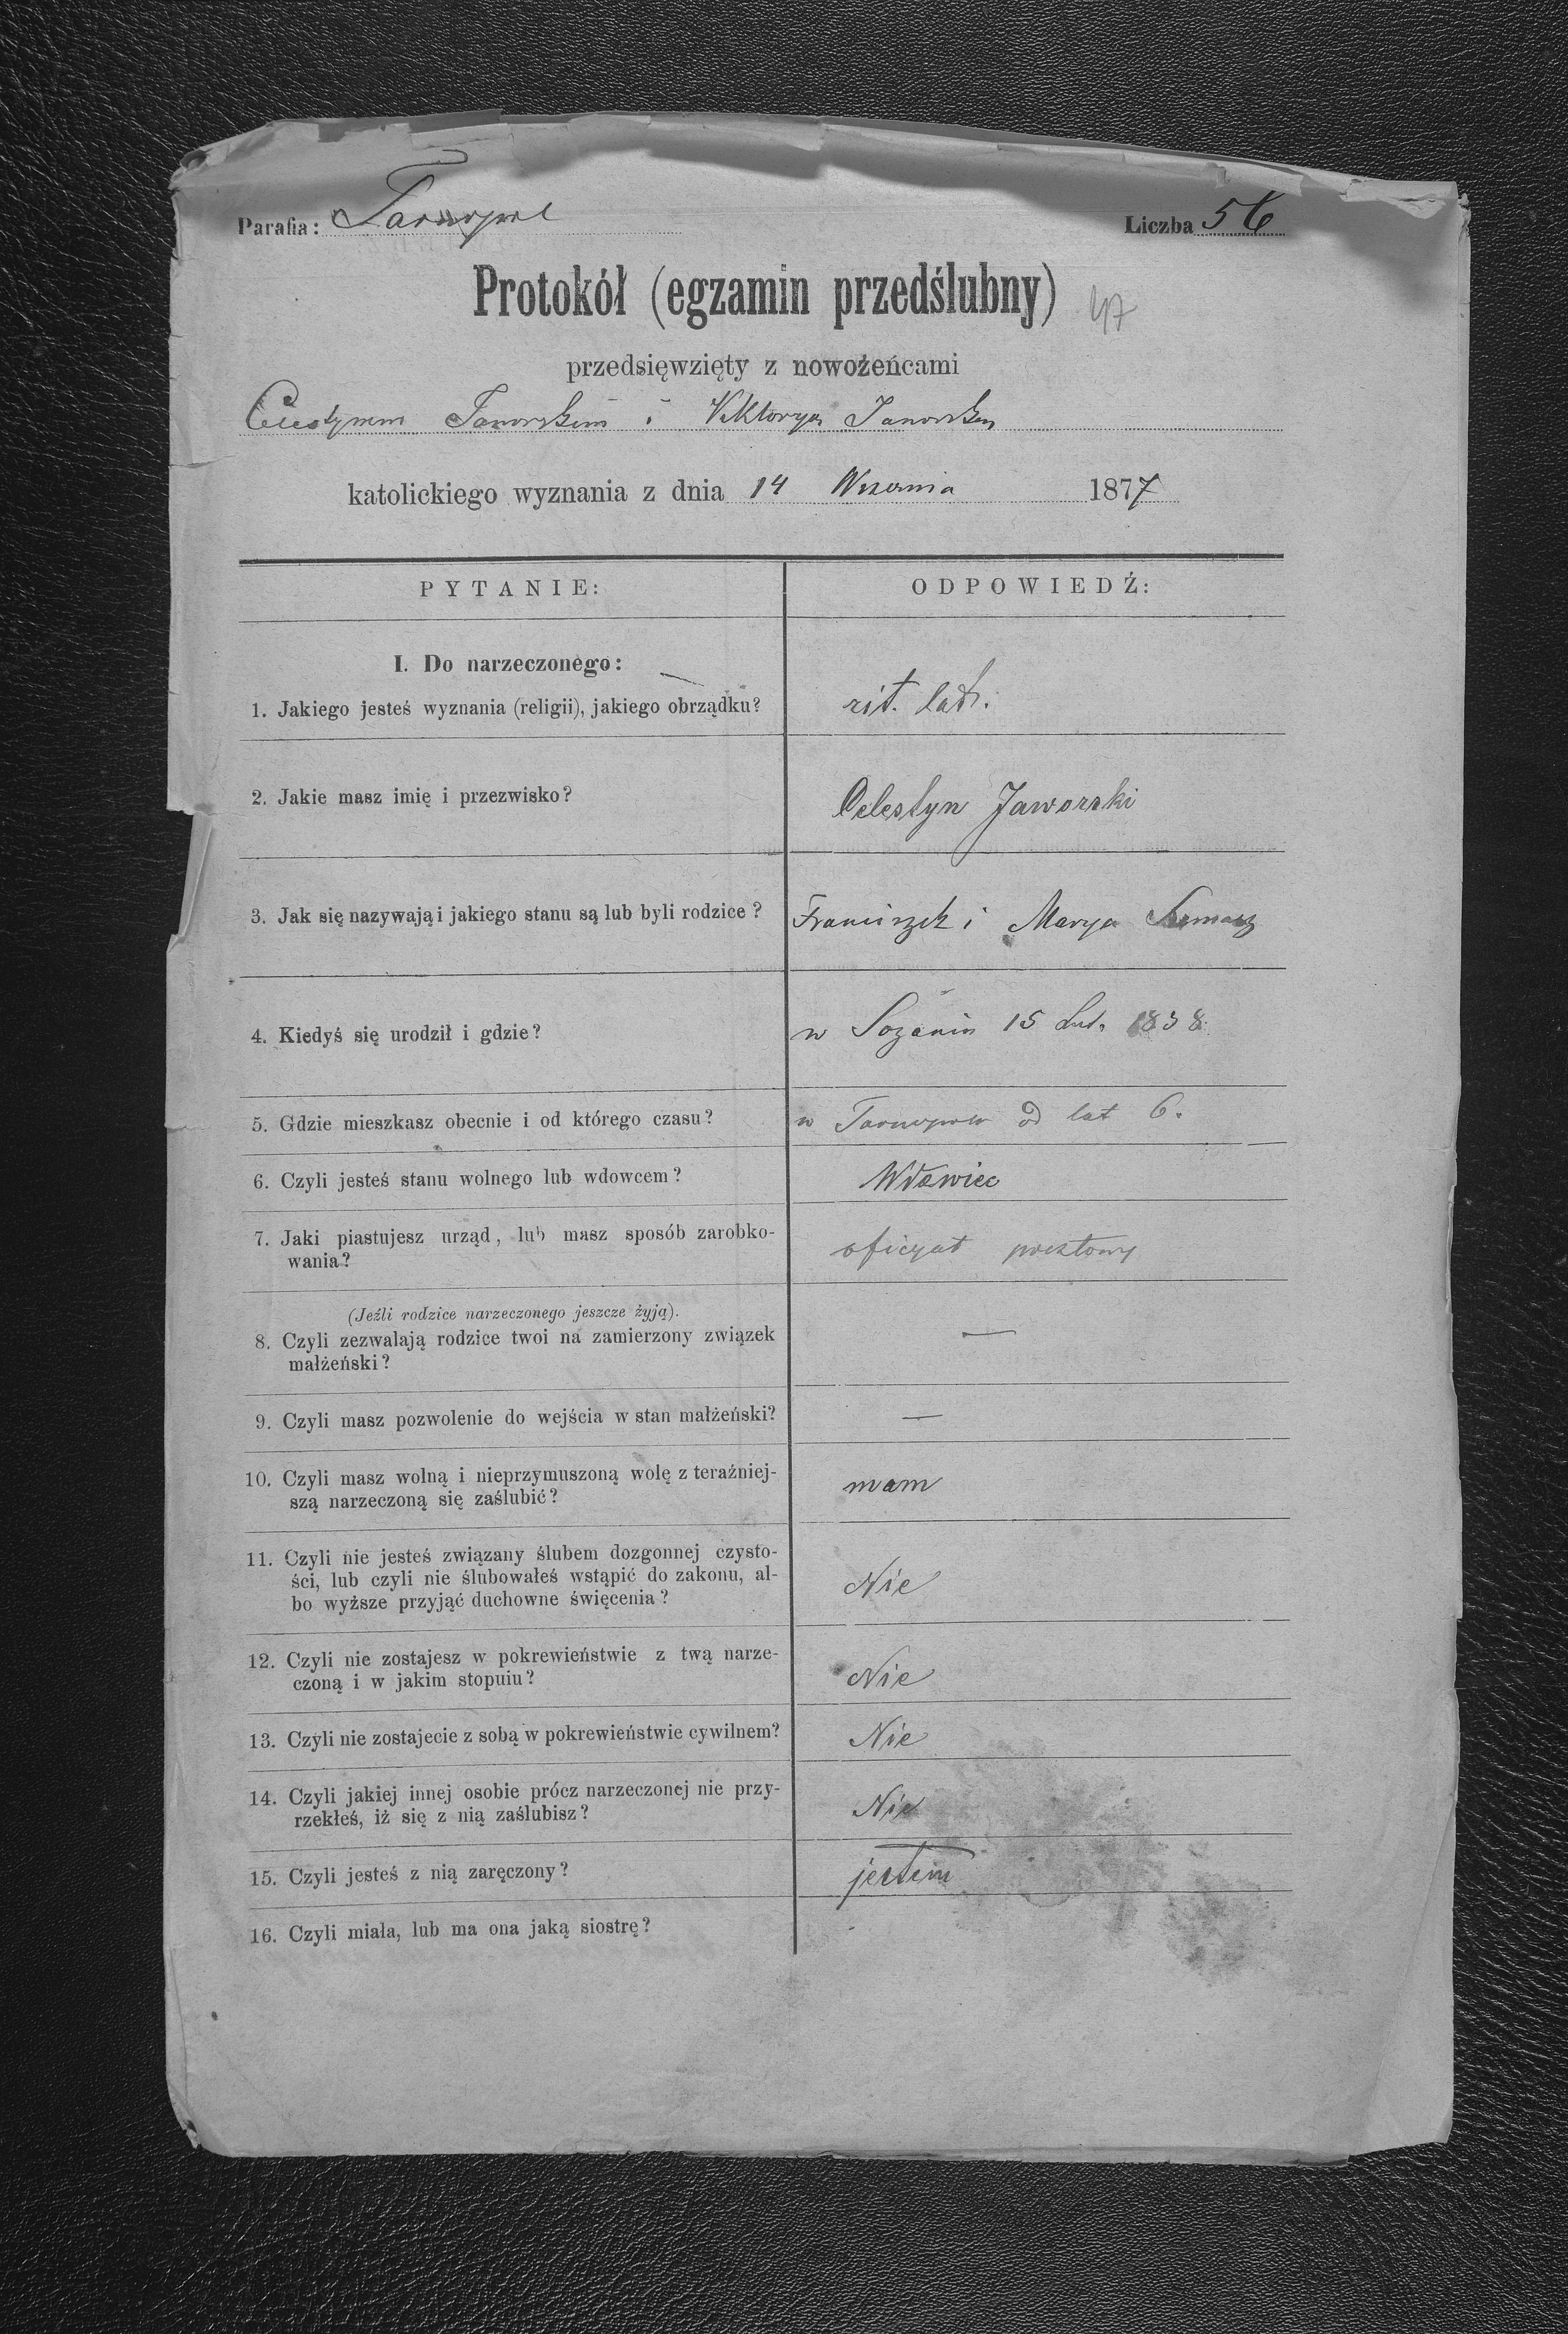 Parafia: Tarnopol Liczba 56
Protokół (egzamin przedślubny) 47
przedsięwzięty z nowożeńcami
i Viktorya
katolickiego wyznania z dnia 14 1877
PYTANIE: ODPOWIEDŹ:
I. Do narzeczonego:
1. Jakiego jesteś wyznania (religii), jakiego obrządku? rit. lat.
2. Jakie masz imię i przezwisko? Celestyn Jaworski
3. Jak się nazywają i jakiego stanu są lub byli rodzice? Franciszek i Marya
4. Kiedyś się urodził i gdzie? w 15 Lut. 1838
5. Gdzie mieszkasz obecnie i od którego czasu? w Tarnopolu od lat 6.
6. Czyli jesteś stanu wolnego lub wdowcem? Wdowiec
7. Jaki piastujesz urząd, lub masz sposób zarobko-
wania? oficyał pocztowy
(Jeźli rodzice narzeczonego jeszcze żyją).
8. Czyli zezwalają rodzice twoi na zamierzony związek —
małżeński?
9. Czyli masz pozwolenie do wejścia w stan małżeński? —
10. Czyli masz wolną i nieprzymuszoną wolę z teraźniej- mam
szą narzeczoną się zaślubić?
11. Czyli nie jesteś związany ślubem dozgonnej czysto-
ści, lub czyli nie ślubowałeś wstąpić do zakonu, al- Nie
bo wyższe przyjąć duchowne święcenia?
12. Czyli nie zostajesz w pokrewieństwie z twą narze-
czoną i w jakim stopuiu? Nie
13. Czyli nie zostajecie z sobą w pokrewieństwie cywilnem? Nie
14. Czyli jakiej innej osobie prócz narzeczonej nie przy- Nie
rzekłeś, iż się z nią zaślubisz?
15. Czyli jesteś z nią zaręczony? jestem
16. Czyli miała, lub ma ona jaką siostrę?